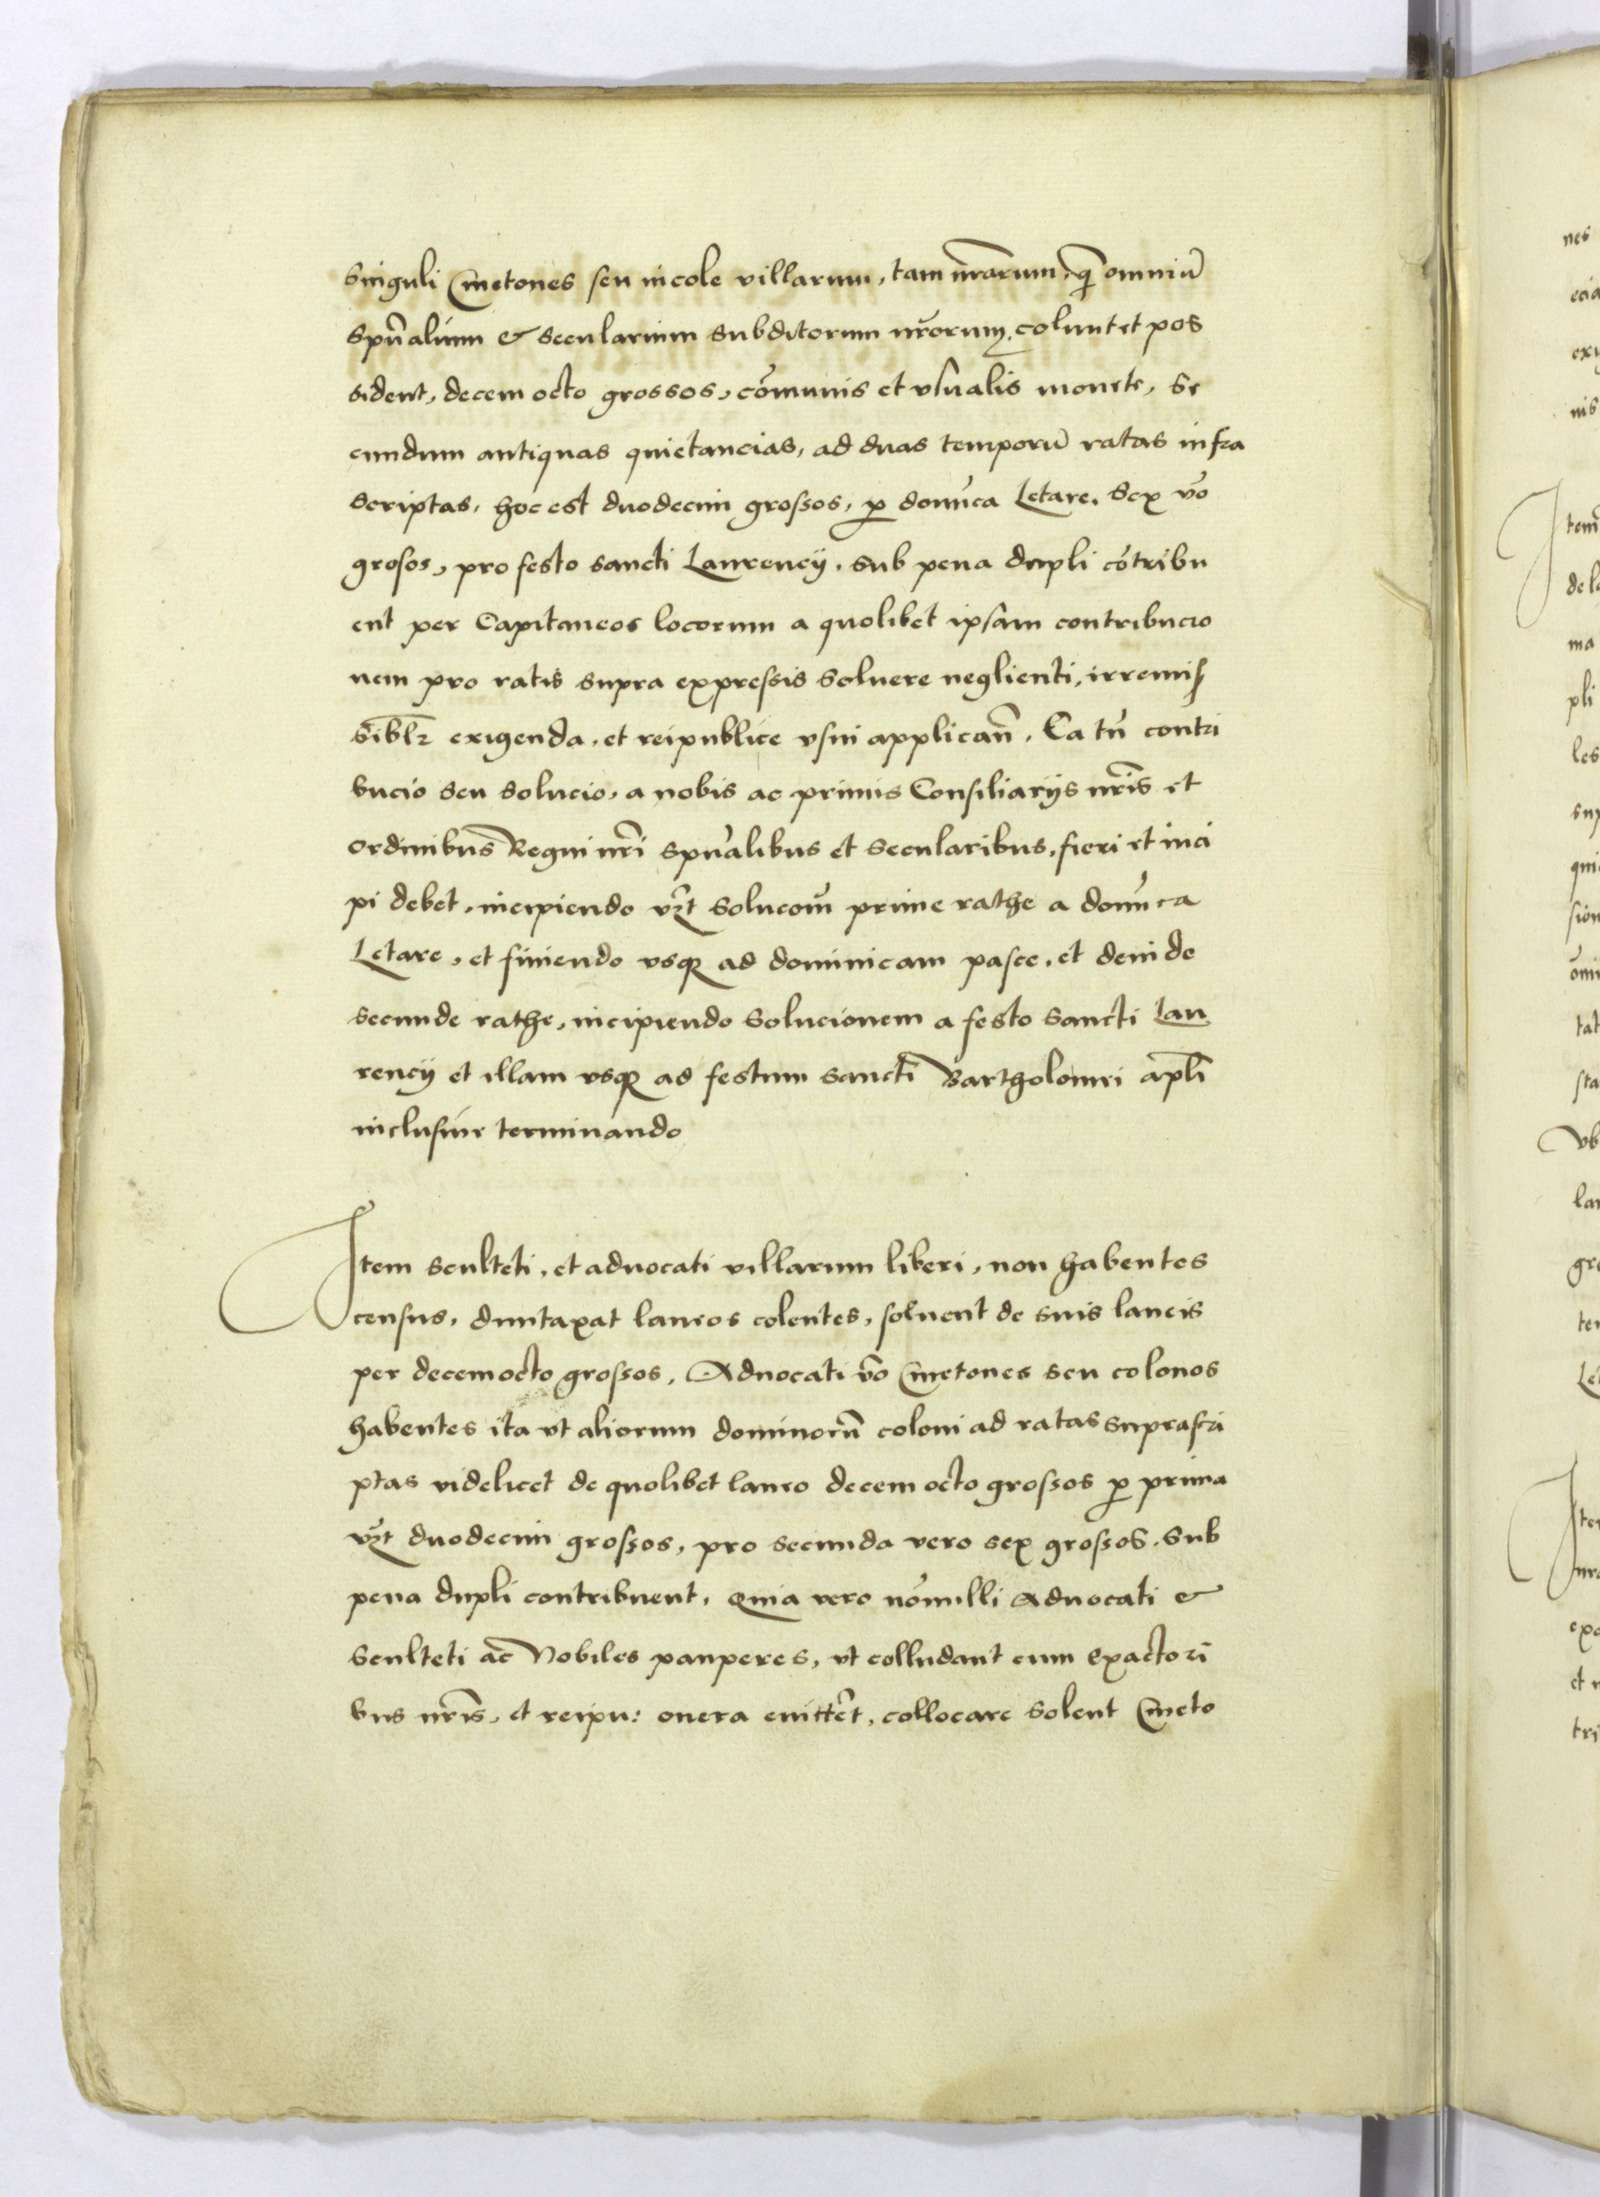 singuli Cmetones seu incole villarum, tam nrarum, q̄ omniū
spūalium & secularium subditorum nrorum, colunt et pos
sident, decem octo grossos, cōmunis et vsualis monete, Se
cundum antiquas quietancias, ad duas temporū ratas infra
scriptas, hoc est duodecim grossos, p donīca Letare, Sex v̄o
grosos, pro festo sancti Laurencij, sub pena dupli cōtribu
ent per Capitaneos locorum a quolibet ipsam contribucio
nem pro ratis supra expressis soluere neglienti, irremis
siblr exigenda, et reipublice vsui applican̄. Ea tn̄ contri
bucio seu solucio, a nobis ac primis Consiliarijs nrīs et
ordinibus Regni nrī spūalibus et secularibus, fieri et inci
pi debet, incipiendo vȝt solucom̄ prime rathe a donīca
Letare, et finiendo vsqȝ ad dominicam pasce, et deinde
secunde rathe, incipiendo solucionem a festo sancti Lau
rencij et illam vsqȝ ad festum sancti Bartholomei apli
inclusiue terminando
Item sculteti, et aduocati villarum liberi, non habentes
census, duntaxat laneos colentes, soluent de suis laneis
per decemocto grossos, Aduocati v̄o Cmetones seu colonos
habentes ita vt aliorum dominorū coloni ad ratas suprascri
ptas videlicet de quolibet laneo decem octo grossos p prima
vȝt duodecim grossos, pro secunda vero sex grossos, sub
pena dupli contribuent, Quia vero nōnulli Aduocati &
sculteti ac Nobiles pauperes, vt colludant cum exactori
bus nrīs, et reipu: onera euitēt, collocare solent Cmeto
nes